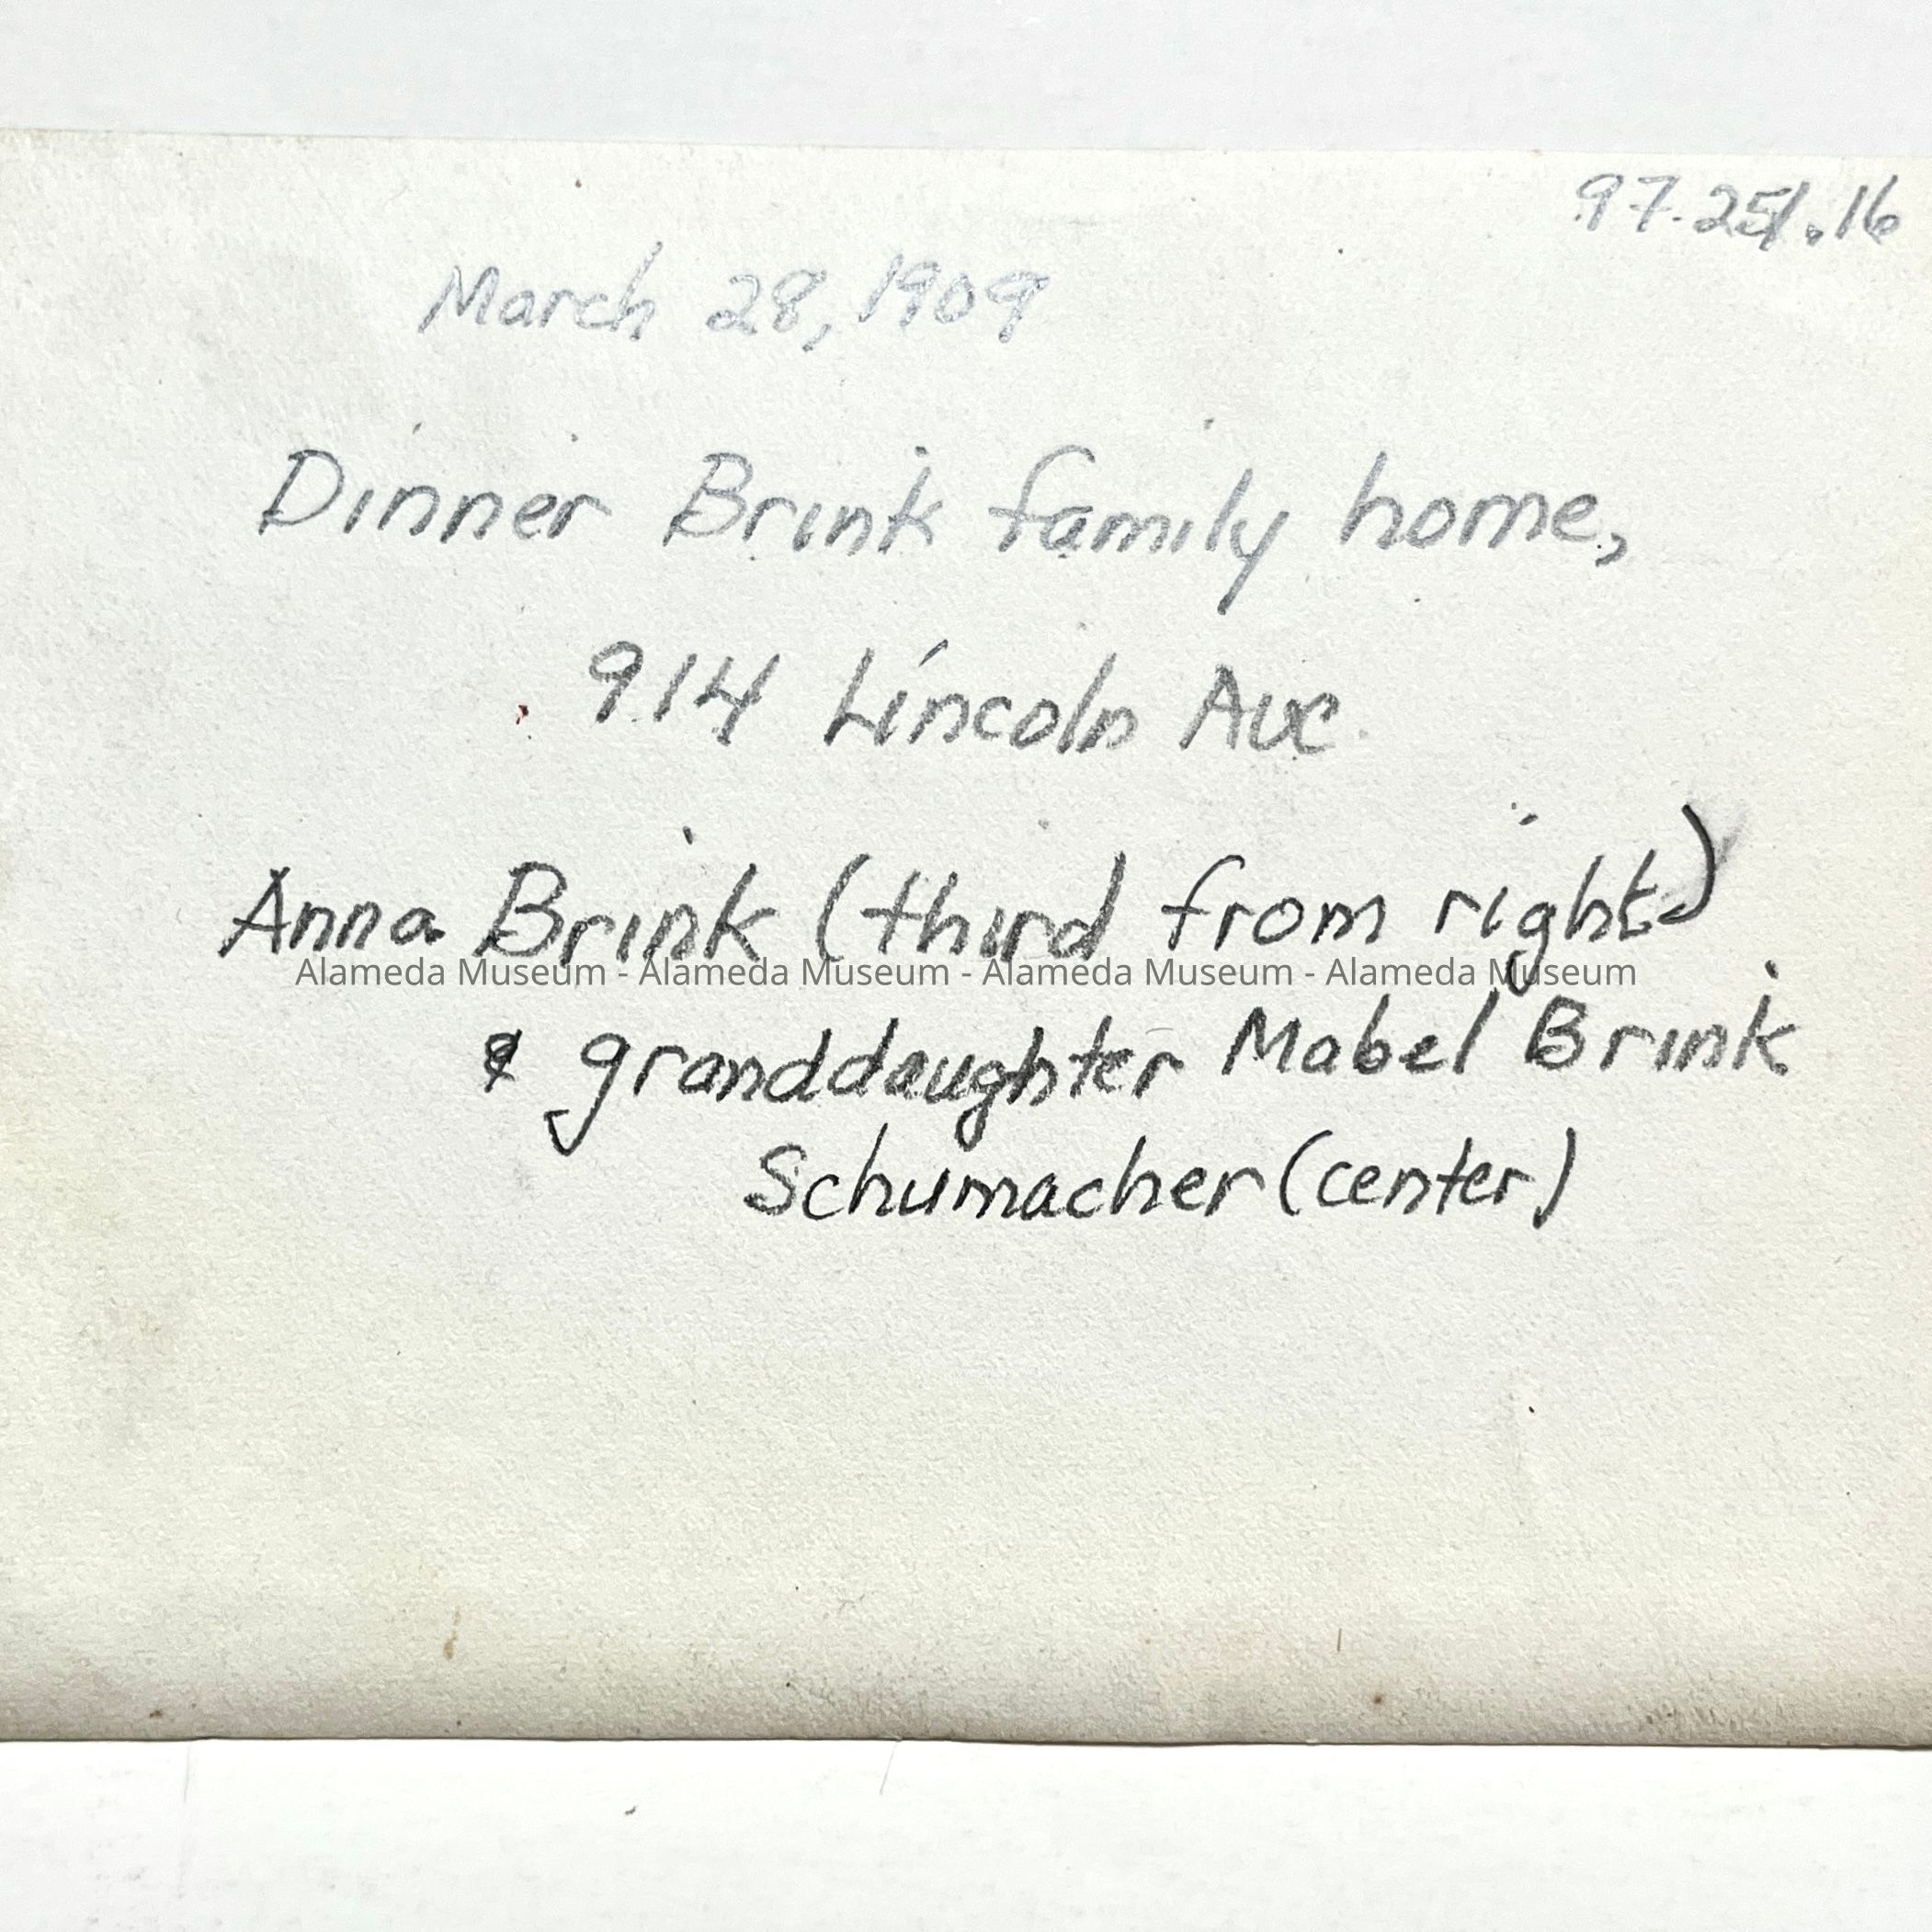 97.251.16
March 28, 1909
Dinner Brink family home,
914 Lincoln Ave.
Anna Brink (third from right)
Alameda Museum - Alameda Museum - Alameda Museum - Alameda Museum
& granddaughter Mabel Brink
Schumacher (center)